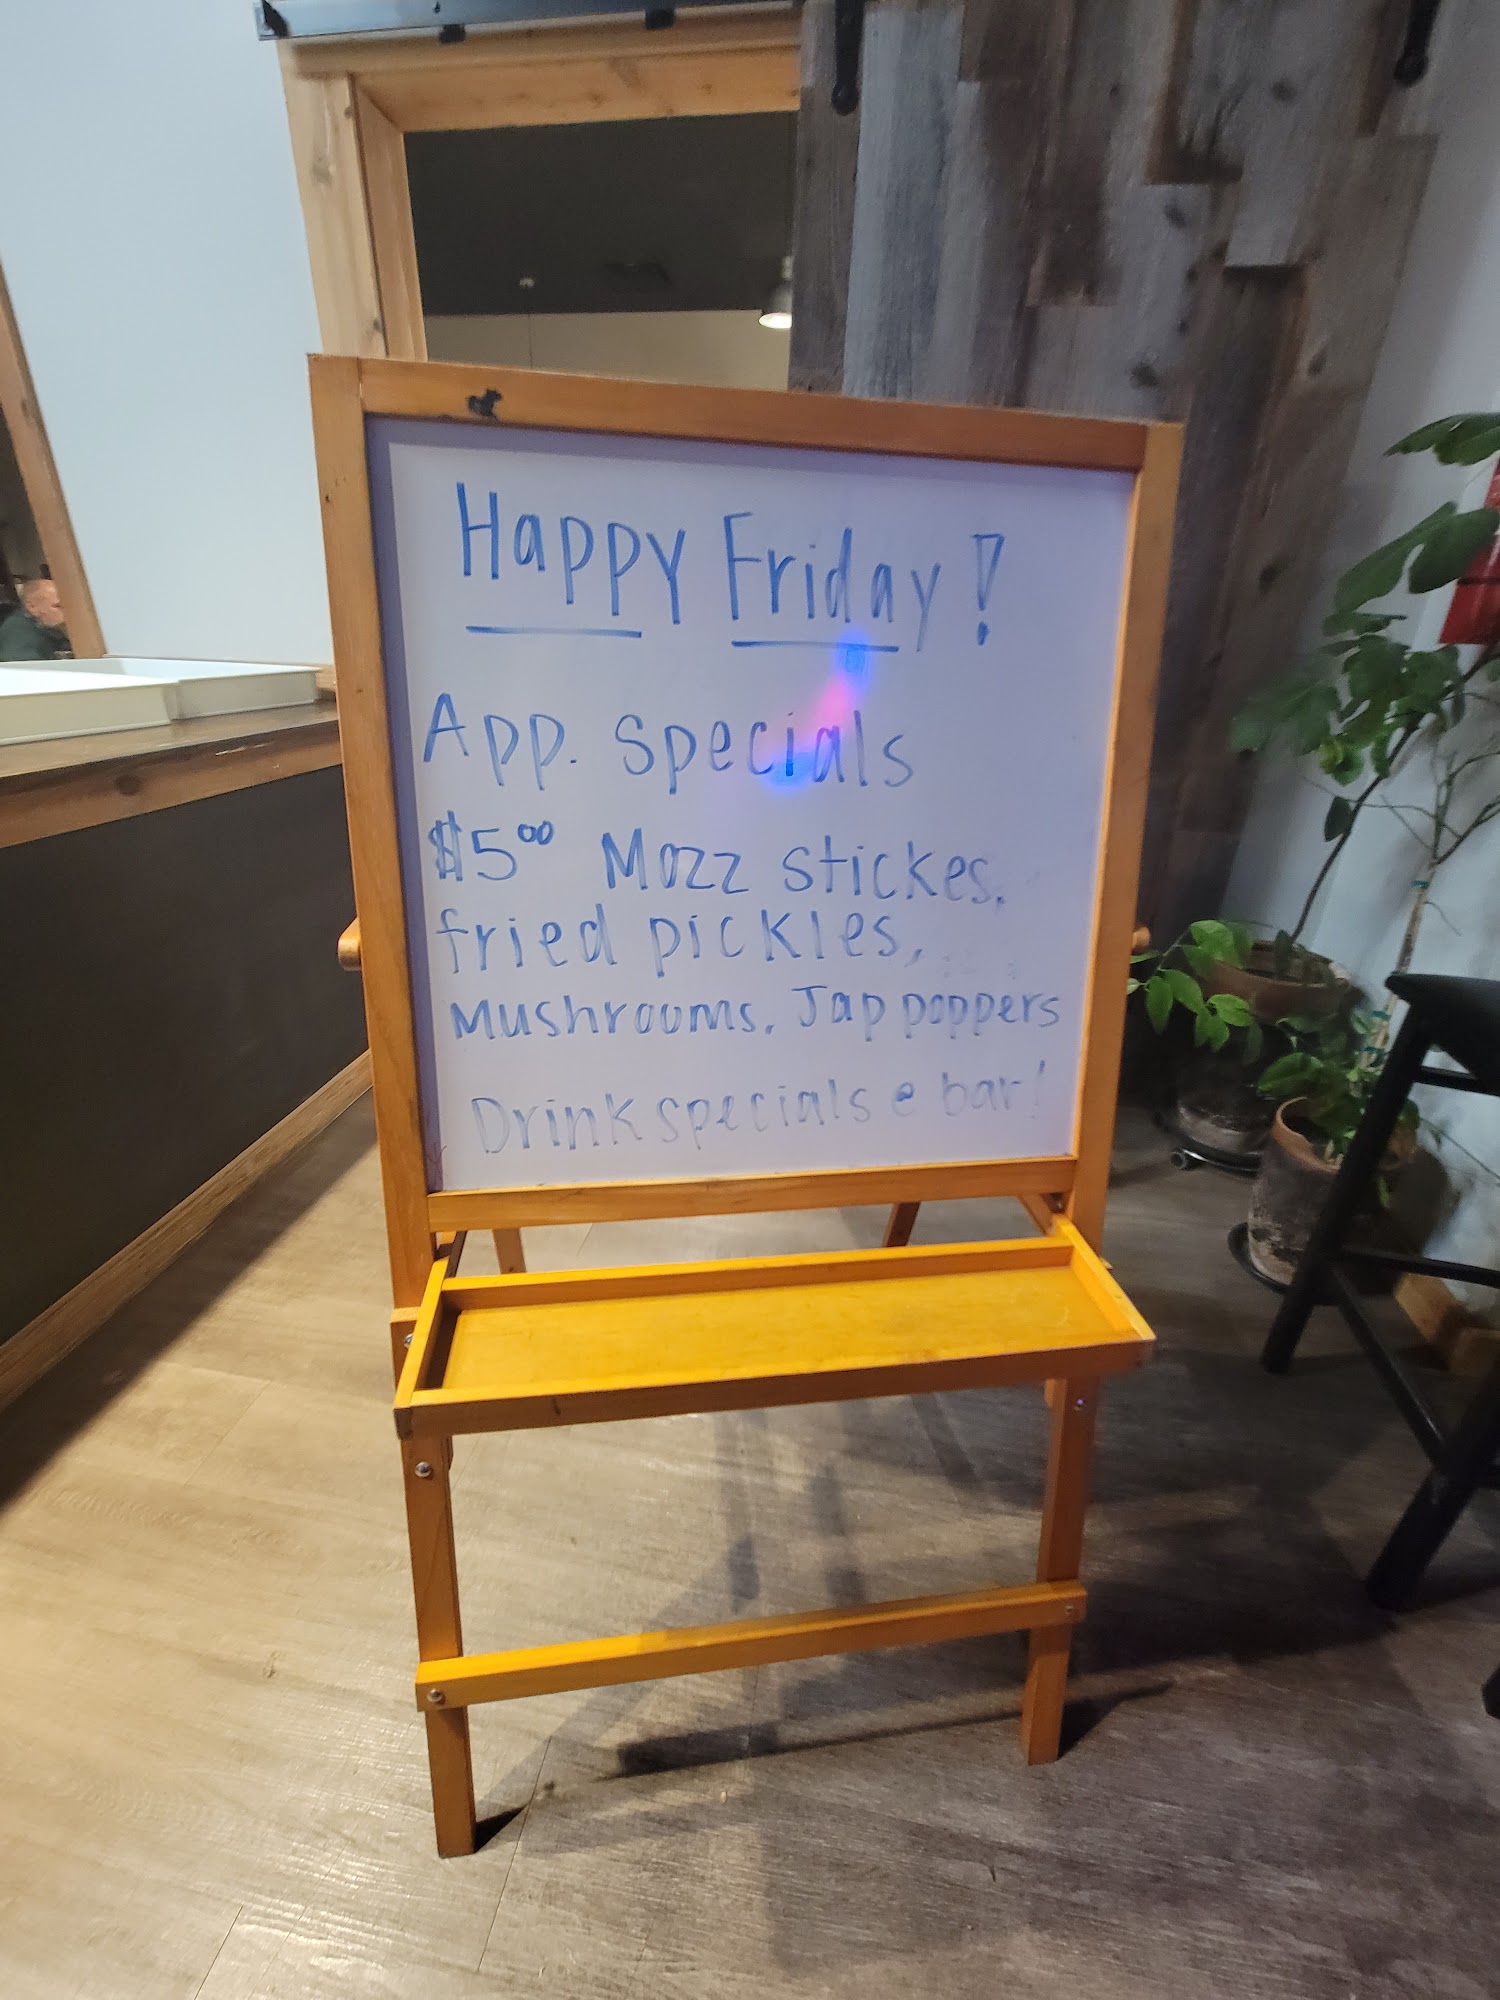 Happy Friday!
App. Specials
$5.00 Mozz stickes.
fried pickles,
Mushrooms. Jap poppers
Drink specials @ bar!